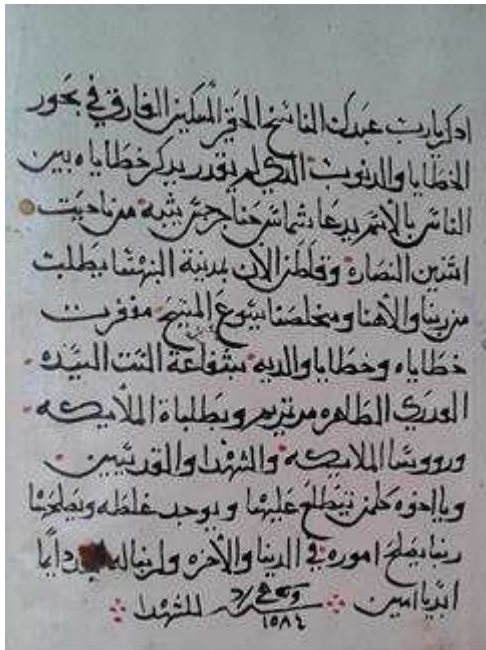 ادكر يارب عبدك الناسخ الحقير المسكين الغارق في بحور
الخطايا والدنوب الدي لم يقدر يدكر خطاياه بين
الناس بالاسم يدعا شماس حنا جرجس
النصاره وقاطن الان بمدينة البهنسا يطلب
من ربنا والاهنا ومخلصنا يسوع المسيح مغفرت
خطاياه وخطايا والديه بشفاعة الست السيده
العدري الطاهره مرتمريم وبطلباة الملايكه
ورووسا الملايكه والشهدا والقديسين
ويا اخوه كلمن يطلع عليها ويوجد غلطه ويصلحها
ربنا يصلح اموره في الدينا والاخره ولربنا دايما
ابديا امين للشهدا
١٥٨٤